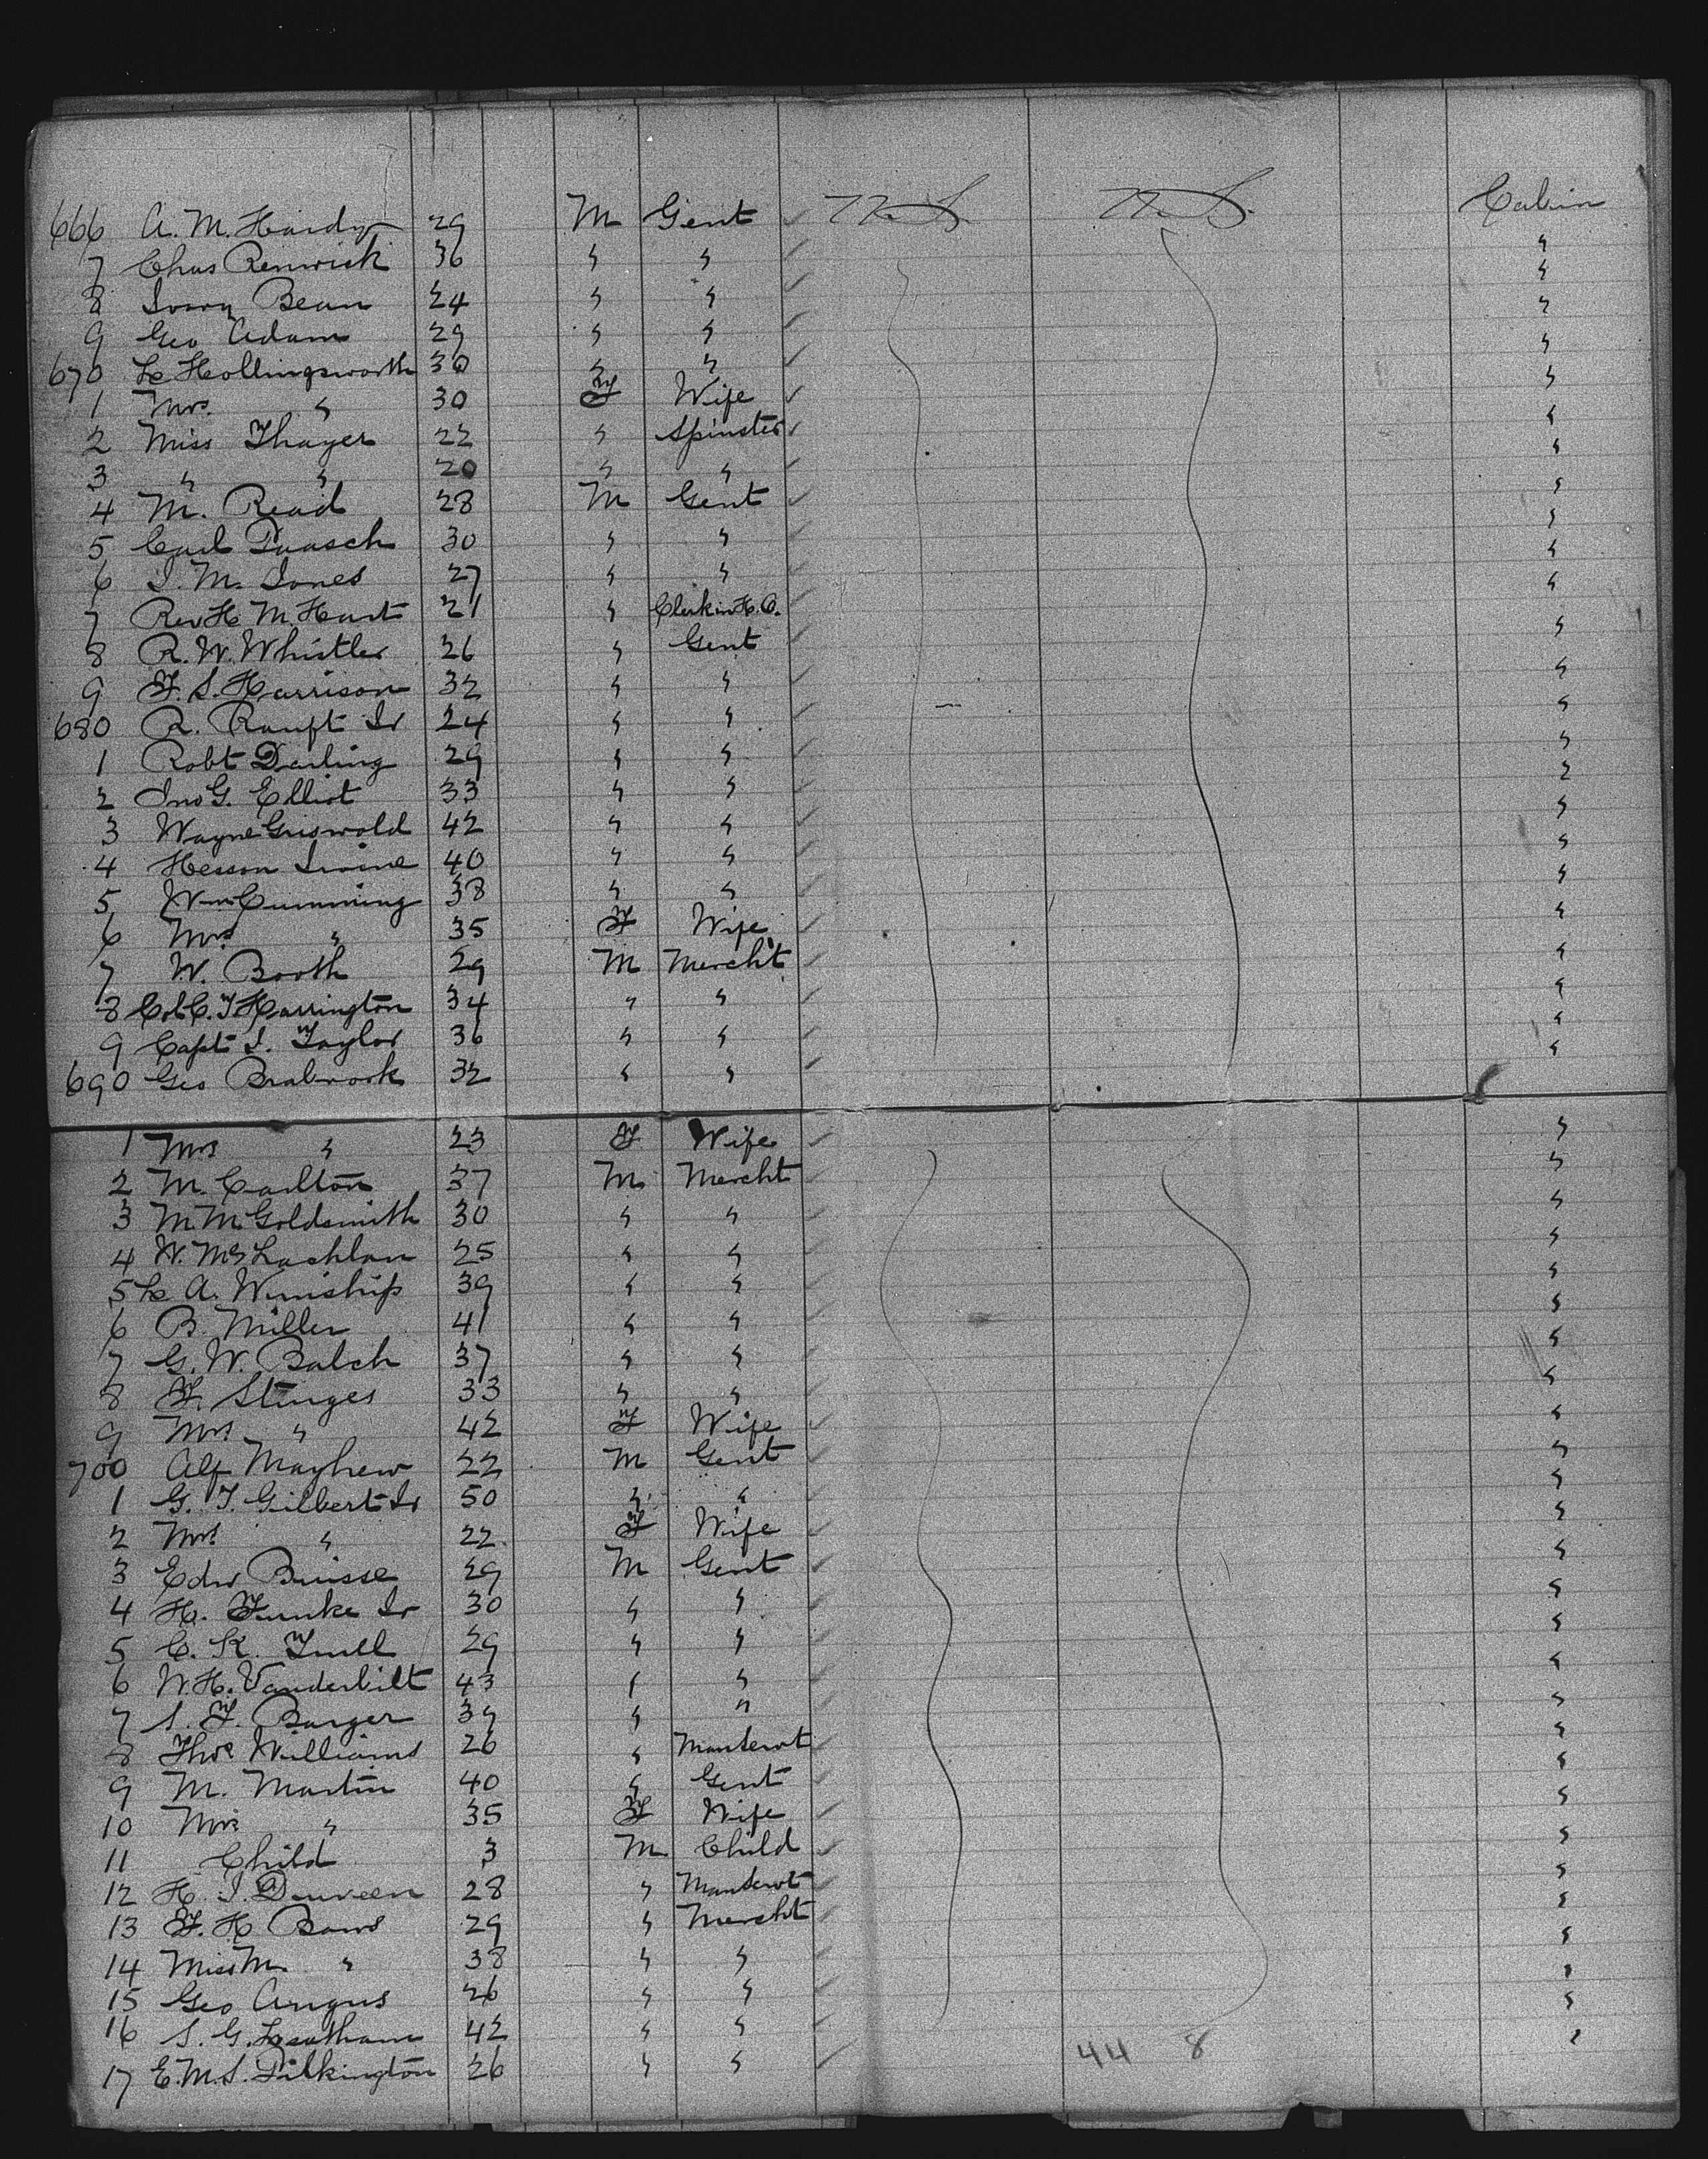 666 A. M. Hardy 29 M Gent U. S. U. S. Cabin
7 Chas Renwick 36 " " "
8 Ivory Bean 24 " " "
9 Geo Adam 29 " " "
670 L. Hollingsworth 30 " " "
1 Mrs. " 30 F Wife "
2 Miss Thayer 22 " Spinster "
3 " " 20 " " "
4 M. Read 28 M Gent "
5 Carl Paasch 30 " " "
6 I. M. Jones 27 " " "
7 Rev H. M. Hart 21 " Clerk in H. O. "
8 R. W. Whistler 26 " Gent "
9 F. S. Harrison 32 " " "
680 R. Ranft Jr 24 " " "
1 Robt Darling 29 " " "
2 Jno G. Elliot 33 " " "
3 Wayne Griswold 42 " " "
4 Hesson Irvine 40 " " "
5 Wm Cumming 38 " " "
6 Mrs " 35 F Wife "
7 W. Booth 29 M Mercht "
8 Col C. F Harrington 34 " " "
9 Capt J. Taylor 36 " " "
690 Geo Brabrook 32 " " "
1 Mrs " 23 F Wife "
2 M. Carlton 37 M Mercht "
3 M M Goldsmith 30 " " "
4 W. McLachlan 25 " " "
5 L. A. Winiship 39 " " "
6 B. Miller 41 " " "
7 G. W. Balch 37 " " "
8 F. Sturges 33 " " "
9 Mrs " 42 F Wife "
700 Alf Mayhew 22 M Gent "
1 G. F. Gilbert Jr 50 " " "
2 Mrs " 22 F Wife "
3 Edw Buisse 29 M Gent "
4 H. Funke Jr 30 " " "
5 C. K. Tull 29 " " "
6 W. H. Vanderbilt 43 " " "
7 S. F. Barger 39 " " "
8 Thos Williams 26 " ManServt "
9 M. Martin 40 " Gent "
10 Mrs " 35 F Wife "
11 Child 3 M Child "
12 H. J. Duveen 28 " ManServt "
13 F. H Bows 29 " Mercht "
14 Miss M. " 38 " " "
15 Geo Angus 26 " " "
16 S. G. Leatham 42 " " "
17 E. M. S. Pilkington 26 " " "
44 8